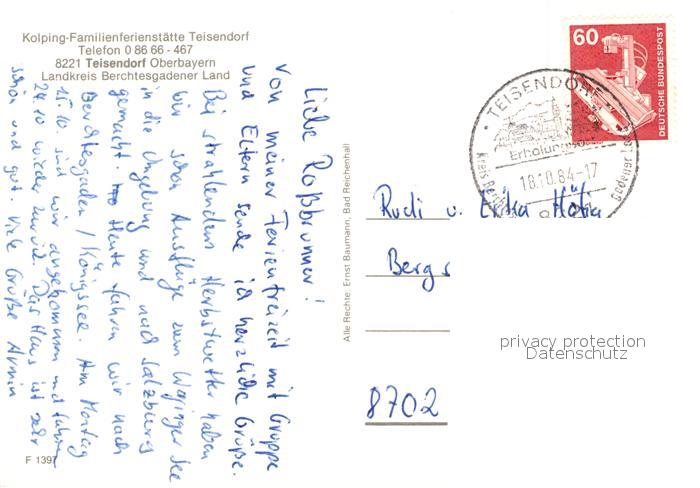 Kolping-Familienferienstätte Teisendorf
Telefon 0 86 66 - 467
8221 Teisendorf Oberbayern
Landkreis Berchtesgadener Land
Liebe Roßbrunner!
Von meiner Ferienfreizeit mit Gruppe
und Eltern sende ich herzliche Grüße.
Bei strahlendem Herbstwetter haben
wir schon Ausflüge zum Waginger See
in die Umgebung und nach Salzburg
gemacht. Heute fahren wir nach
Berchtesgaden / Königssee. Am Montag
15.10. sind wir angekommen und fahren
24.10 wieder zurück. Das Haus ist sehr
schön und gut. Viele Grüße Armin
F 1397
Alle Rechte: Ernst Baumann, Bad Reichenhall
60
DEUTSCHE BUNDESPOST
TEISENDORF
Erholungso
18.10.84-17
Kreis Berch
gadener La
Rudi u. Erika
Bergs
8702
privacy protection
Datenschutz